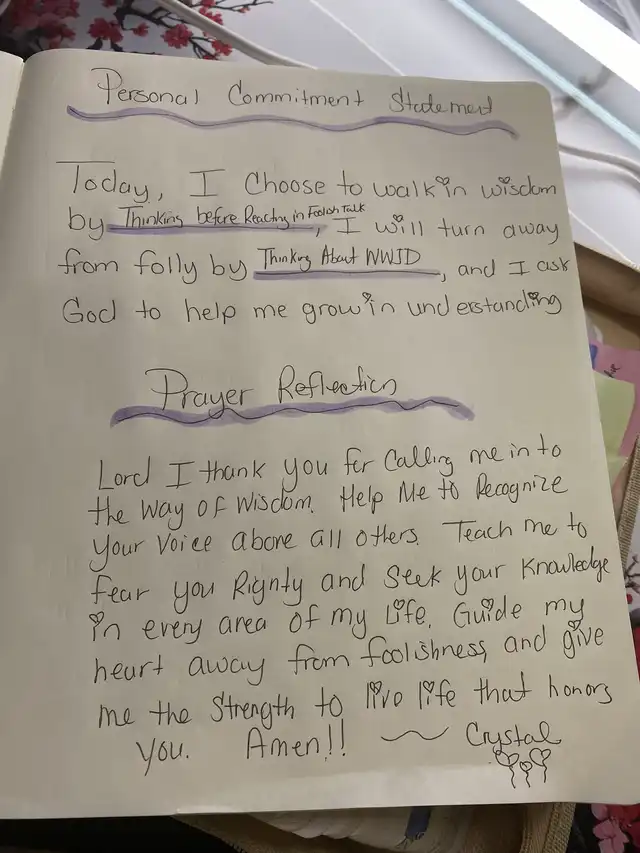 Personal Commitment Statement
Today, I Choose to walk in wisdom
by Thinking before Reacting in Foolish Talk, I will turn away
from folly by Thinking About WWJD, and I ask
God to help me grow in understanding
Prayer Reflection
Lord I thank you for Calling me in to
the Way of Wisdom. Help Me to Recognize
Your Voice above all others. Teach me to
fear you Rignty and Seek your Knowledge
in every area of my Life. Guide my
heart away from foolishness, and give
me the Strength to live life that honors
you. Amen!! ~ Crystal